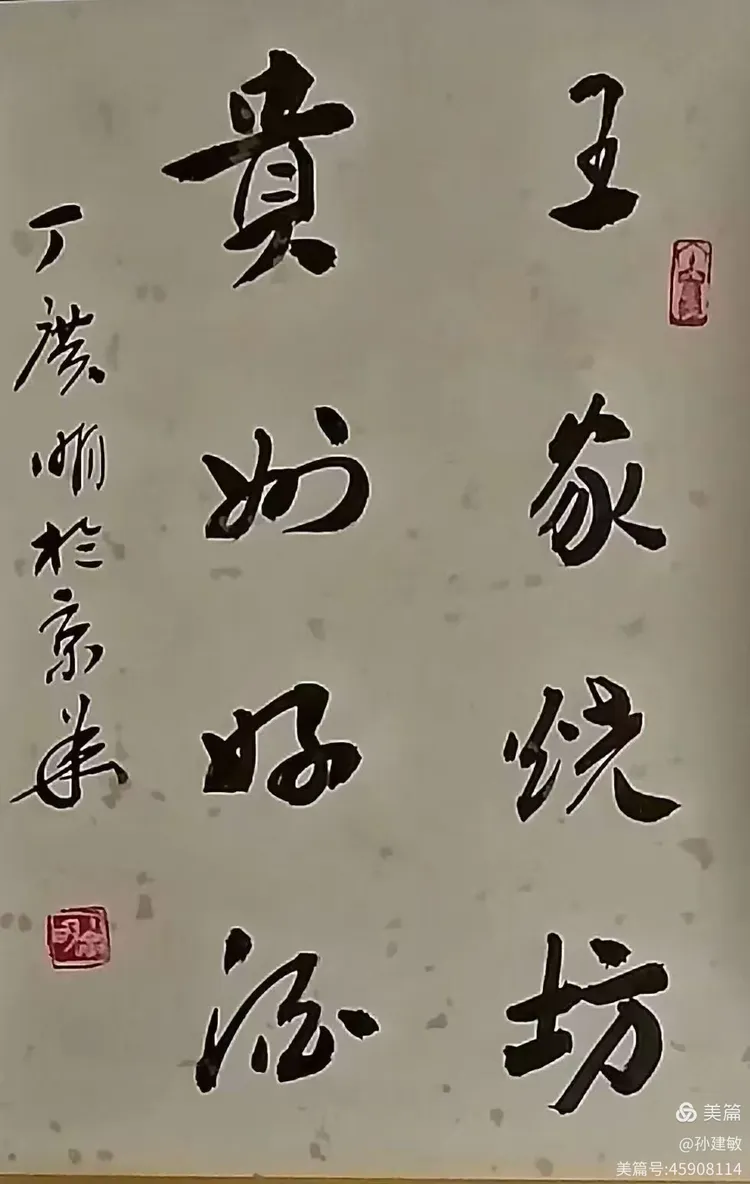 王家烧坊
貴州好酒
丁广明於京華
美篇
@孙建敏
美篇号:45908114